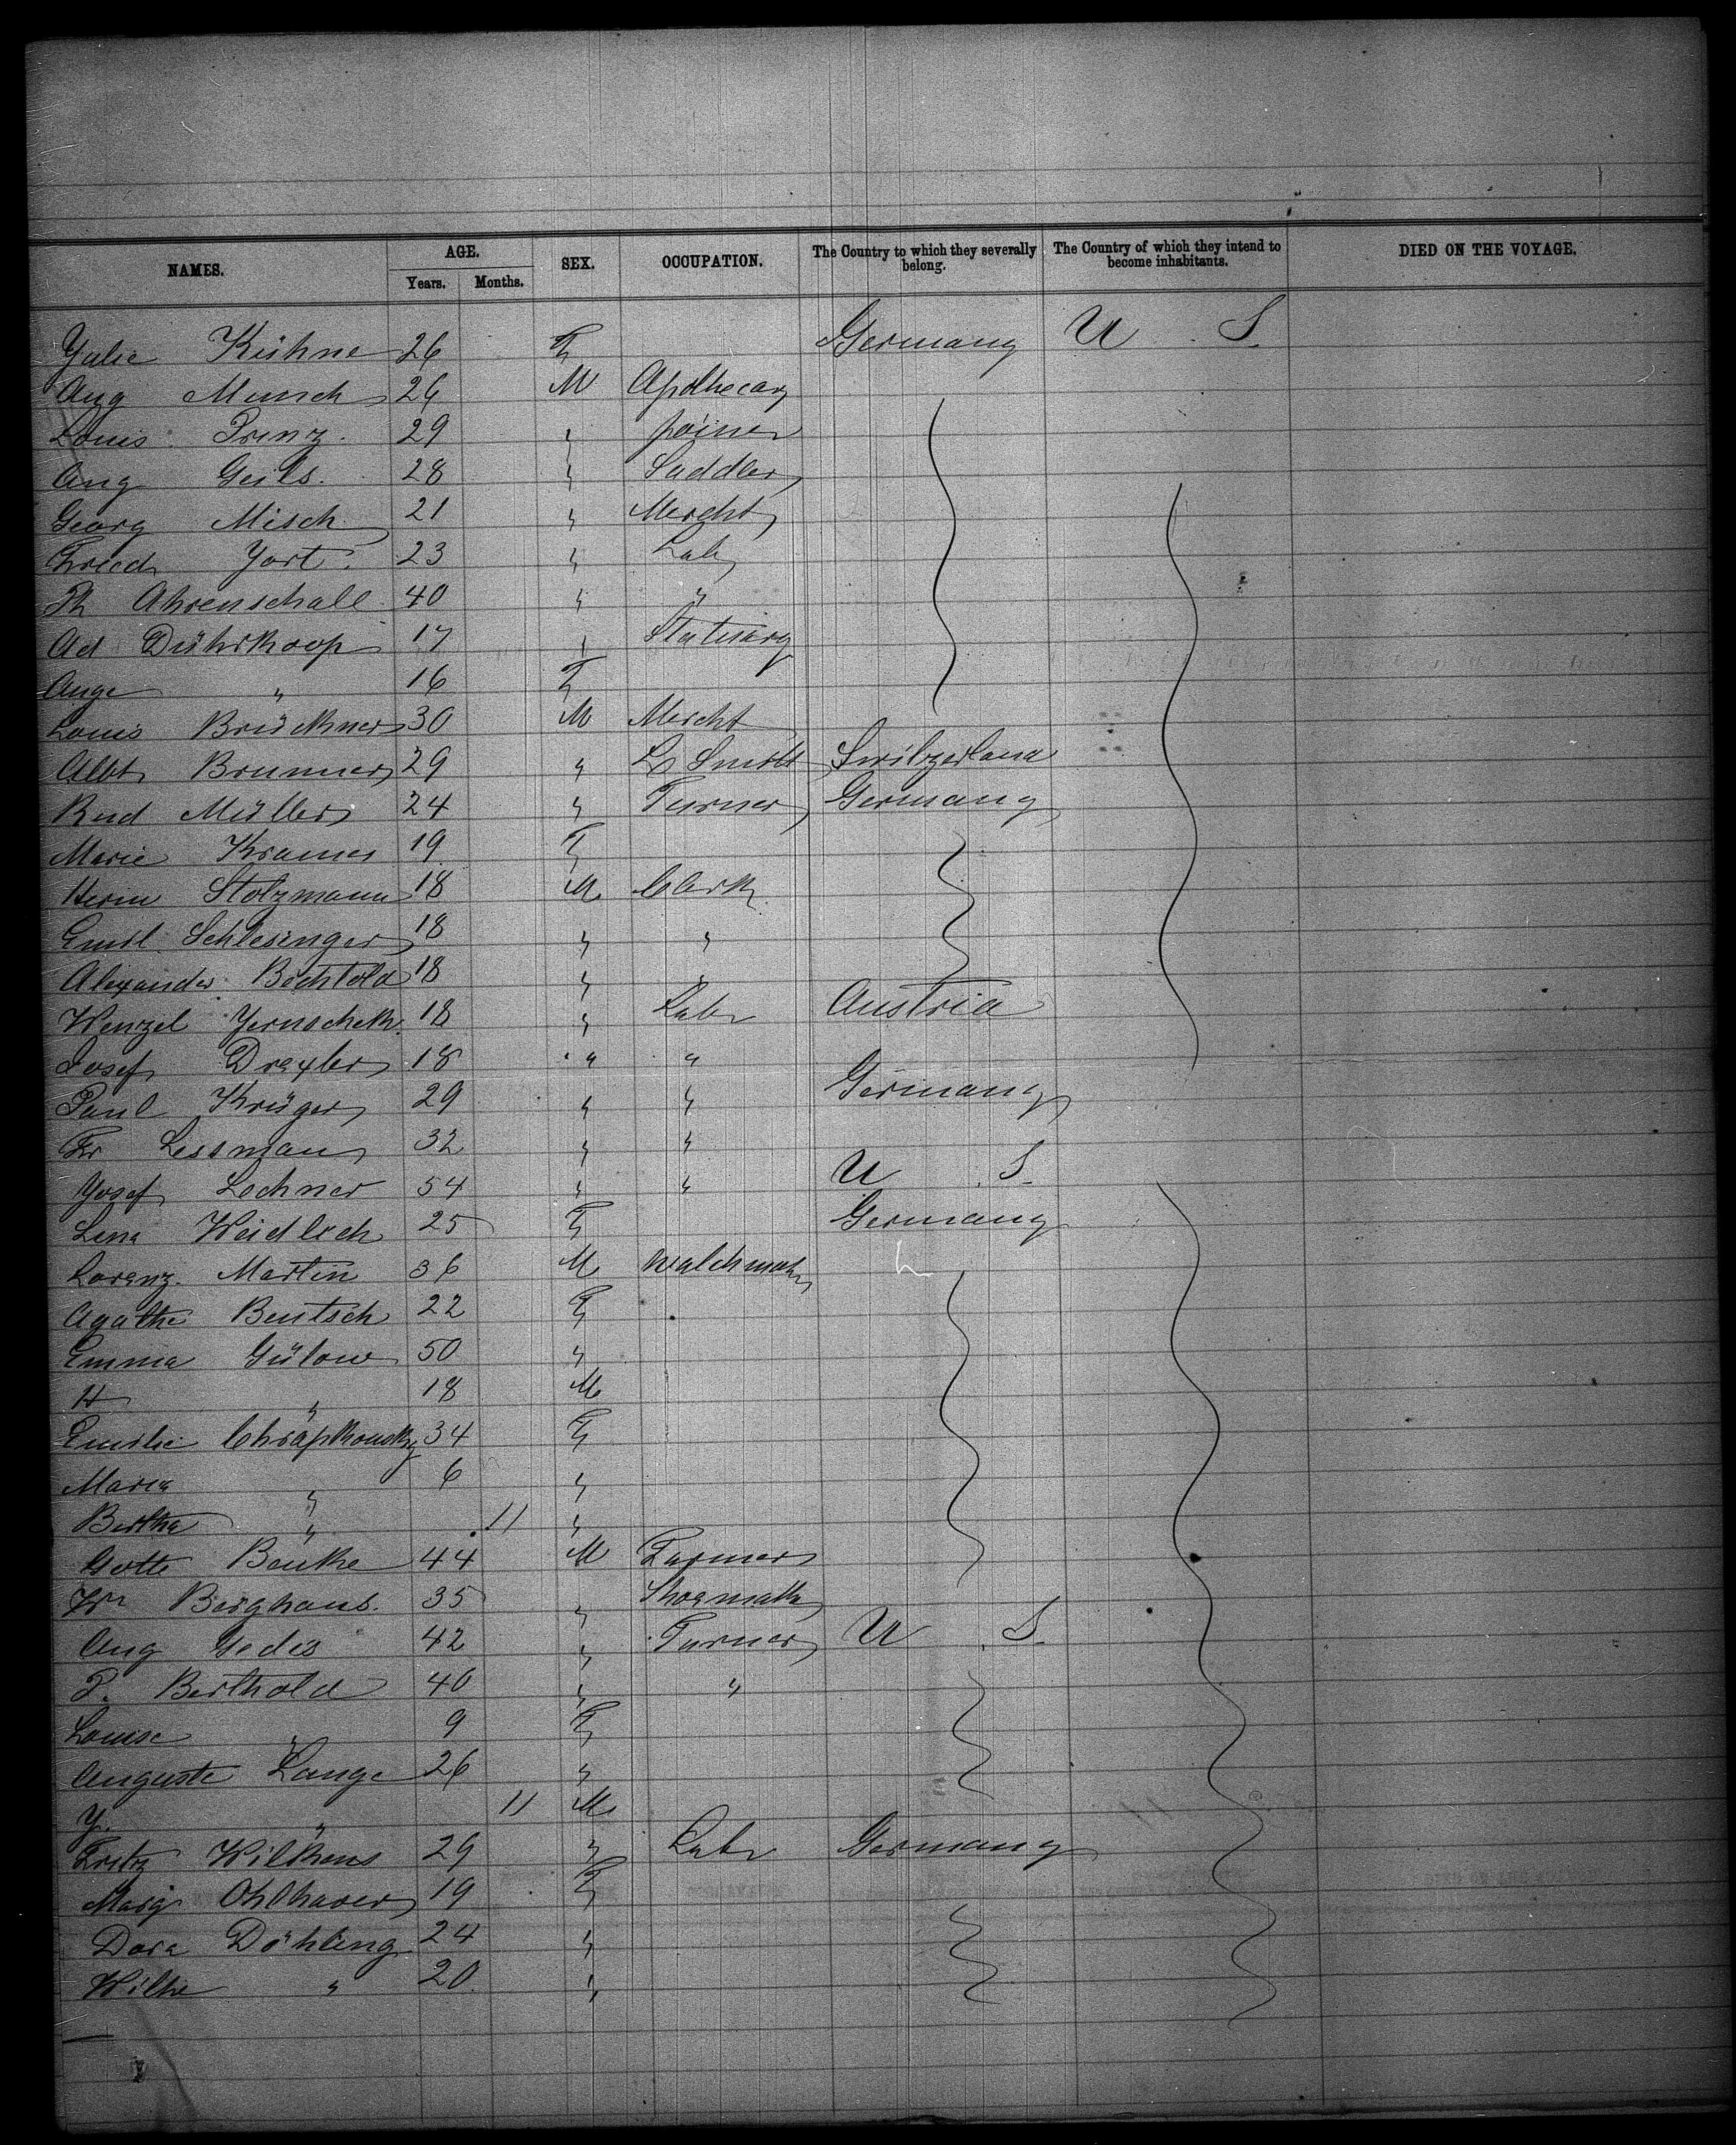 NAMES. AGE. SEX. OCCUPATION. The Country to which they severally belong. The Country of which they intend to become inhabitants. DIED ON THE VOYAGE.
Years. Months.
Julie Kühne 26 F Germany U S
Aug Munsch 26 M Apothecary
Louis Prinz. 29 " joiner
Aug Geils. 28 " Saddler
Georg Misch 21 " Mercht
Friedr Jort. 23 " Lab
Th Ahrenschall 40 " "
Ad Dührkoop 17 " Statuary
Auge " 16 F
Louis Brückner 30 M Mercht
Albt Brunner 29 " L Smith Switzerland
Rud Müller 24 " Turner Germany
Marie Kramer 19 F
Herm Stolzmann 18 M Clerk
Emil Schlesinger 18 " "
Alexander Bechtold 18 " "
Wenzel 18 " Labr Austria
Josef Drexler 18 " "
Paul Krüger 29 " " Germany
Fr Lessman 32 " "
Josef Lechner 54 " " U S
Lina Weidlich 25 F Germany
Lorenz Martin 36 M Watchmakr
Agathe Bentsch 22 F
Emma Gülow 50 "
H " 18 M
Emilie Chrapkowsky 34 F
Maria " 6 "
Bertha " 11 "
Gotte Benke 44 M Farmer
Wm Berghaus. 35 " Shoemakr
Aug Gedes 42 " Turner U S
P. Berthold 40 " "
Louise " 9 F
Auguste Lange 26 "
J. " 11 M
Fritz Wilkens 29 " Labr Germany
Marg Ohlhaver 19 F
Dora Döhling 24 "
Wilhe " 20 "